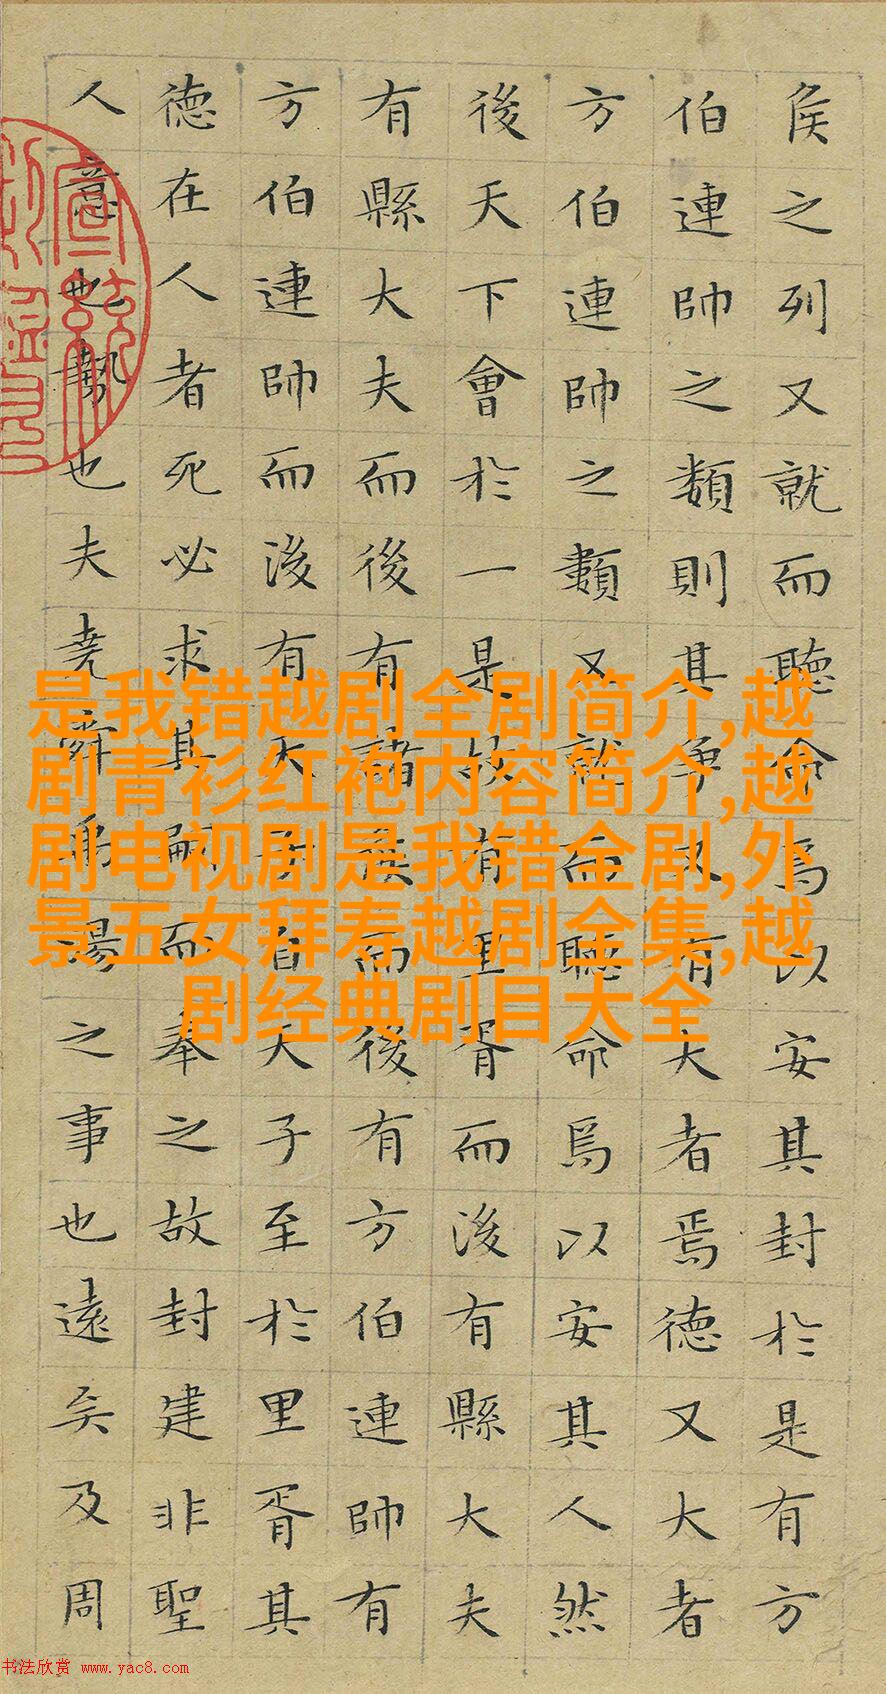 侯之列又就而聽命焉以安其封於是有方
伯連帥之類則其爭又有大者焉德又大者
方伯連帥之類又就而聽命焉以安其人然
後天下會於一是故有里胥而後有縣大夫
有縣大夫而後有諸侯而後有方伯連帥有
方伯連帥而後有天子自天子至於里胥其
德在人者死必求其嗣而奉之故封建非聖
人意也勢也夫堯舜禹湯之事也遠矣及周
是我错越剧全剧简介,越
剧青衫红袍内容简介,越
剧电视剧是我错全剧,外
景五女拜寿越剧全集,越
剧经典剧目大全
书法欣赏 www.yac8.com